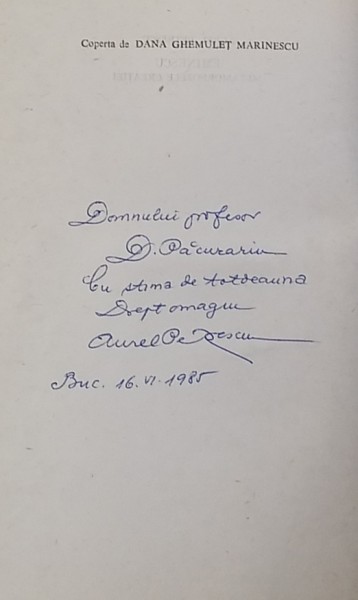 Coperta de DANA GHEMULEȚ MARINESCU
Domnului profesor
D. Păcurariu
Cu stima de totdeauna
Drept omagiu
Aurel Petrescu
Buc. 16.VI.1985